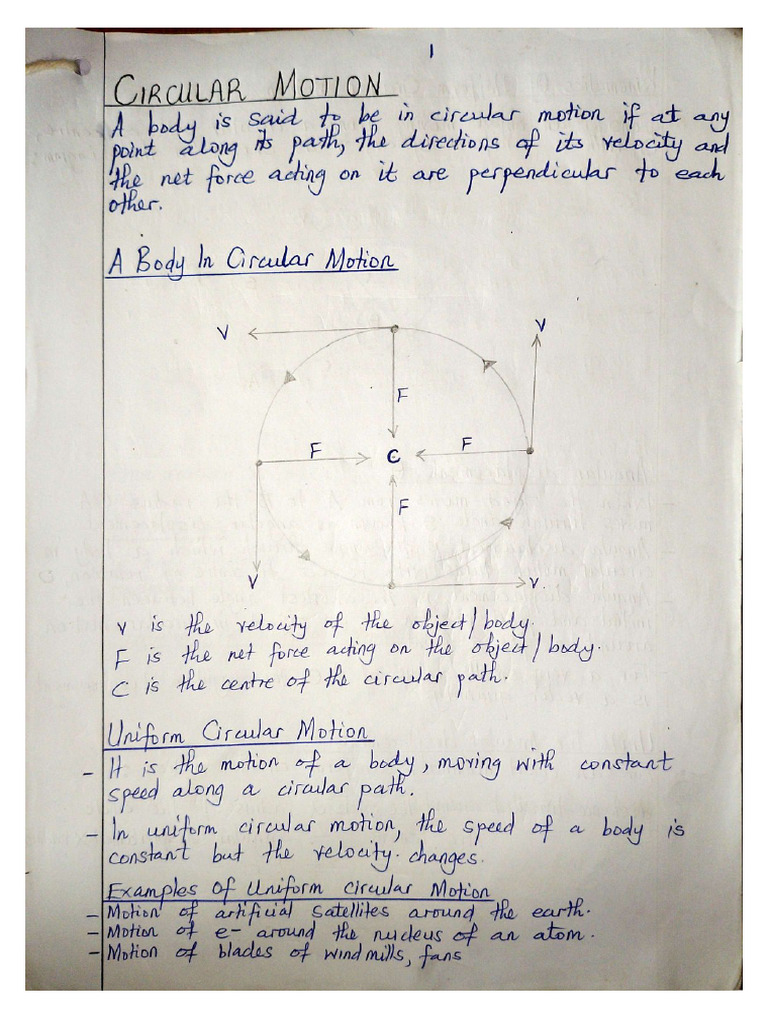 1
CIRCULAR MOTION
A body is said to be in circular motion if at any
point along its path, the directions of its velocity and
the net force acting on it are perpendicular to each
other.
A Body In Circular Motion
V
V
F
F
C
F
F
V
V
V is the velocity of the object/body.
F is the net force acting on the object/body.
C is the centre of the circular path.
Uniform Circular Motion
- It is the motion of a body, moving with constant
speed along a circular path.
- In uniform circular motion, the speed of a body is
constant but the velocity. changes.
Examples of Uniform circular Motion
- Motion of artificial satellites around the earth.
- Motion of e- around the nucleus of an atom.
- Motion of blades of windmills, fans